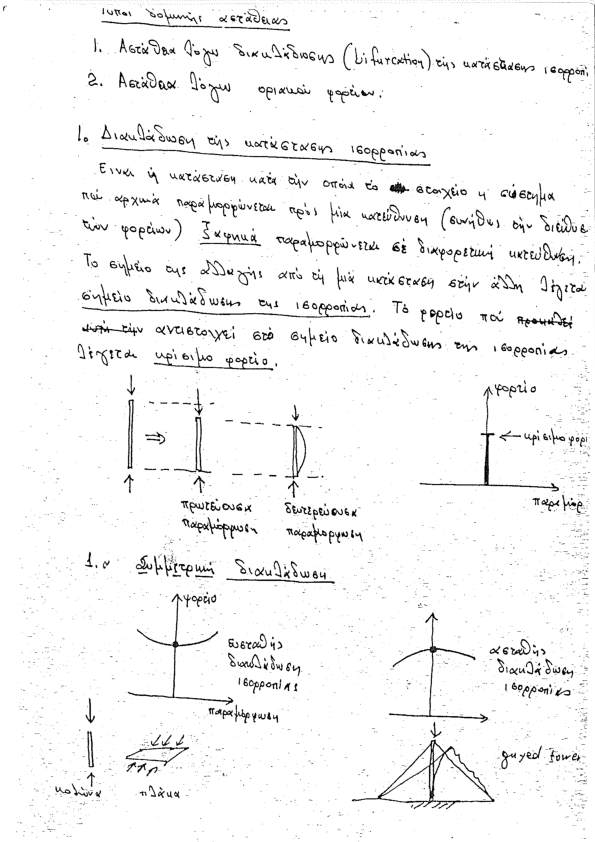 Τύποι δομικής αστάθειας
1. Αστάθεια λόγω διακλάδωσης (bifurcation) της κατάστασης ισορροπί
2. Αστάθεια λόγω οριακού φορτίου.
1. Διακλάδωση της κατάστασης ισορροπίας
Είναι ή κατάσταση κατά την οποία το στοιχείο η σύστημα
πού αρχικά παραμορφώνεται πρός μία κατεύθυνση (συνήθως την διεύθυ
των φορτίων) ξαφνικά παραμορφώνεται σε διαφορετική κατεύθυνση.
Το σημείο της αλλαγής από τη μία κατάσταση στην άλλη λέγεται
σημείο διακλάδωσης της ισορροπίας. Το φορτίο πού προκαλεί
αυτή την αντιστοιχεί στο σημείο διακλάδωσης της ισορροπίας
λέγεται κρίσιμο φορτίο.
φορτίο
κρίσιμο φορτ
παραμόρ
πρωτεύουσα
παραμόρφωση
δευτερεύουσα
παραμόρφωση
1.α Συμμετρική διακλάδωση
φορτίο
ευσταθής
διακλάδωση
ισορροπίας
παραμόρφωση
ασταθής
διακλάδωση
ισορροπίας
guyed tower
κολώνα
πλάκα